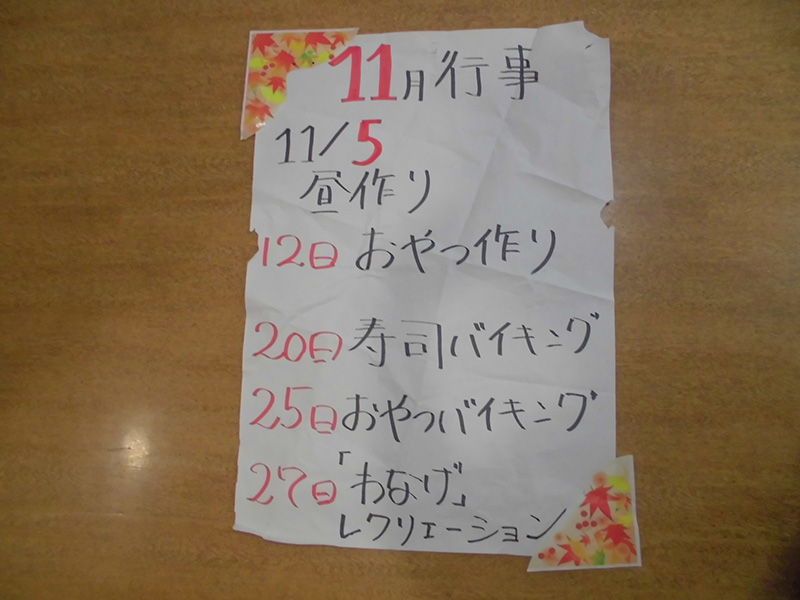 11月行事
11/5
昼作り
12日 おやつ作り
20日 寿司バイキング
25日 おやつバイキング
27日 「わなげ」
レクリエーション